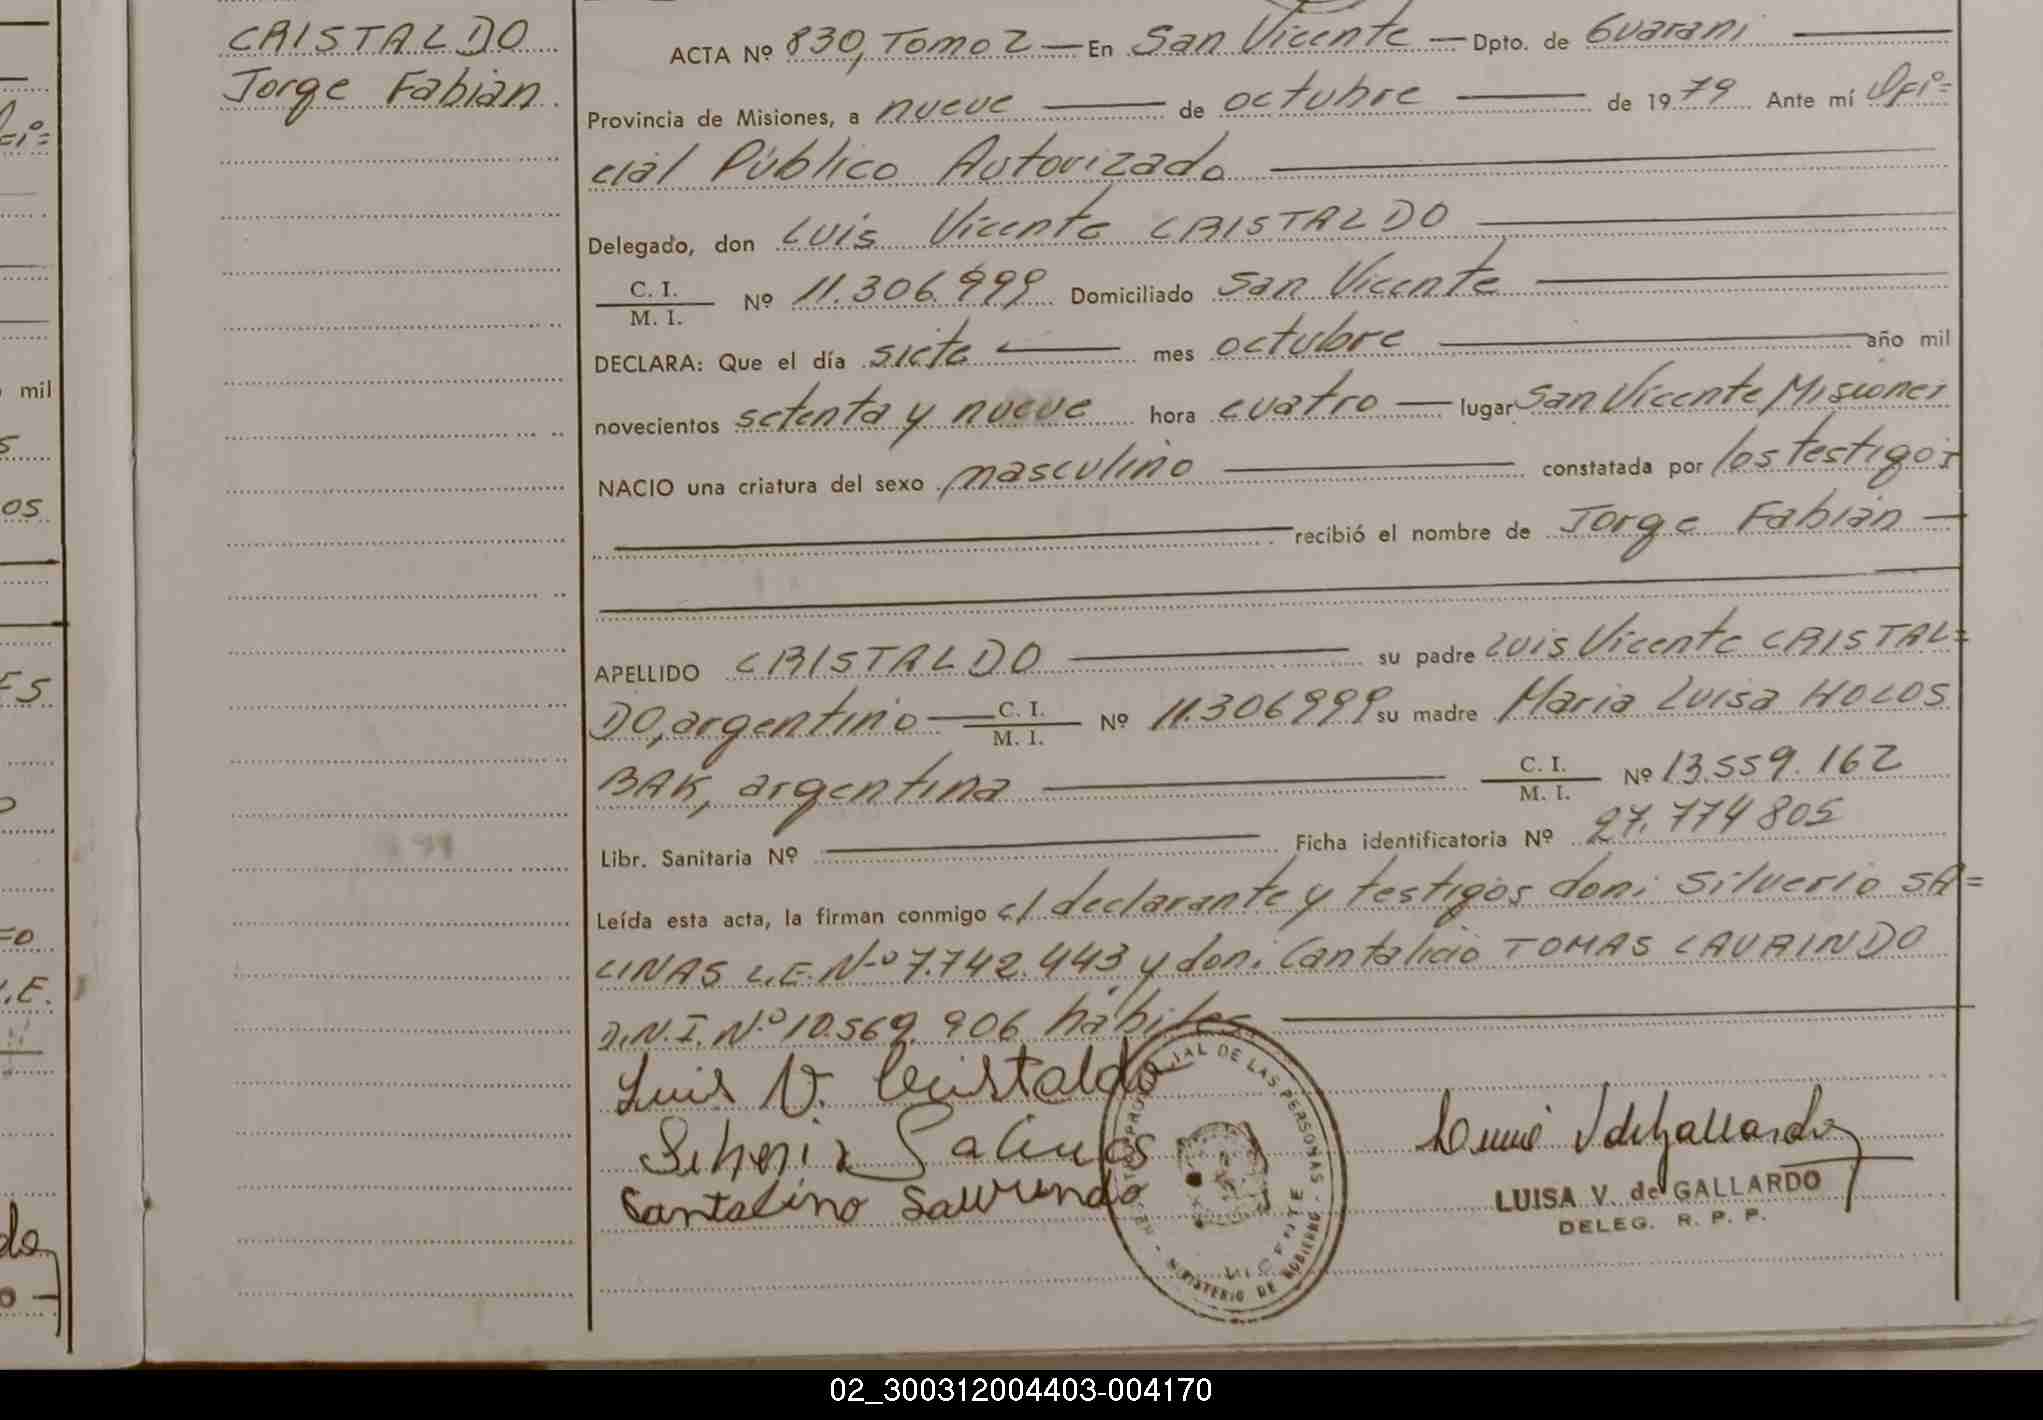 CRISTALDO
Jorge Fabian
ACTA Nº 830, Tomo 2 — En San Vicente — Dpto. de Guarani
Provincia de Misiones, a nueve de octubre de 1979 Ante mí Ofi=
cial Público Autorizado
Delegado, don Luis Vicente CRISTALDO
C. I.
M. I. Nº 11.306.999 Domiciliado San Vicente
DECLARA: Que el día siete mes octubre año mil
novecientos setenta y nueve hora cuatro — lugar San Vicente Misiones
NACIO una criatura del sexo masculino constatada por los testigos
recibió el nombre de Jorge Fabian —
APELLIDO CRISTALDO su padre Luis Vicente CRISTAL=
DO, argentino — C. I.
M. I. Nº 11.306999 su madre Maria Luisa HOLOS
BAK, argentina C. I.
M. I. Nº 13.559.162
Libr. Sanitaria Nº Ficha identificatoria Nº 27.774805
Leída esta acta, la firman conmigo el declarante y testigos don: Silverio SA=
LINAS L.E. Nº 7.742.443 y don: Cantalicio TOMAS LAURINDO
D.N.I. Nº 10.569.906 hábiles
Luis V. Cristaldo
Salinas
LUISA V. de GALLARDO
DELEG. R. P. P.
DE LAS PERSONAS - MINISTERIO DE GOBIERNO
VICENTE
mil
os
ES
L.E.
02_300312004403-004170